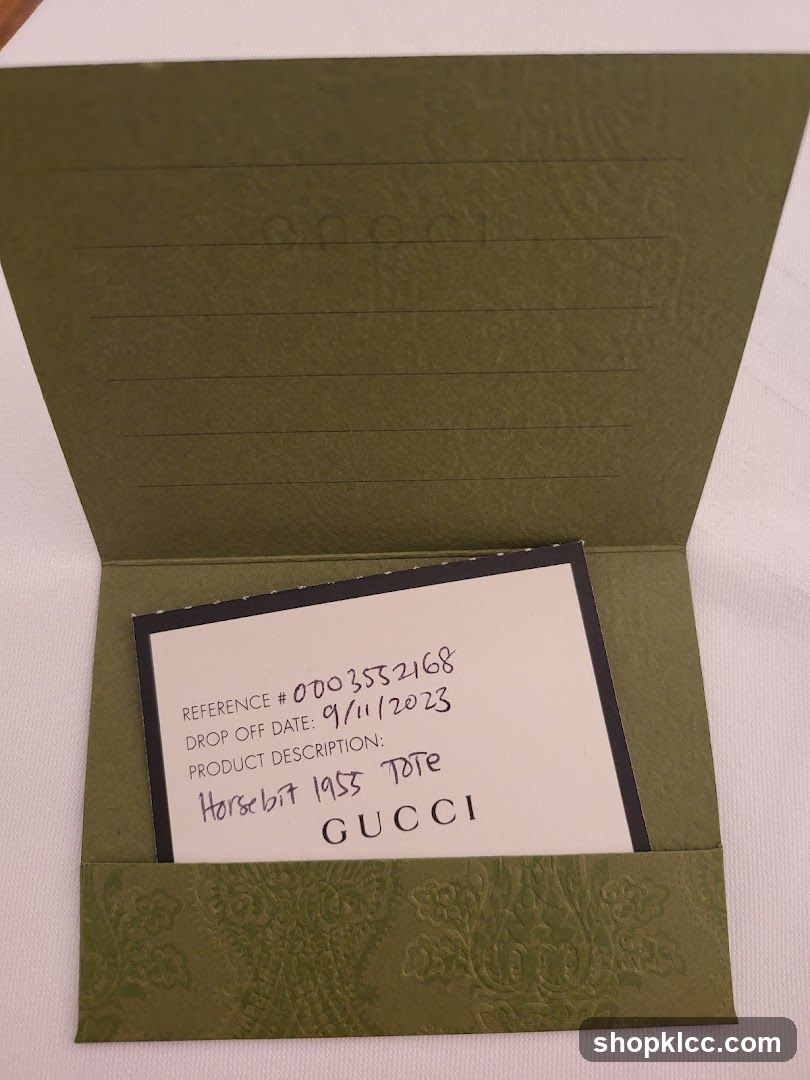 GUCCI
REFERENCE # 0003552168
DROP OFF DATE: 9/11/2023
PRODUCT DESCRIPTION:
Horsebit 1955 TOTE
GUCCI
shopklcc.com